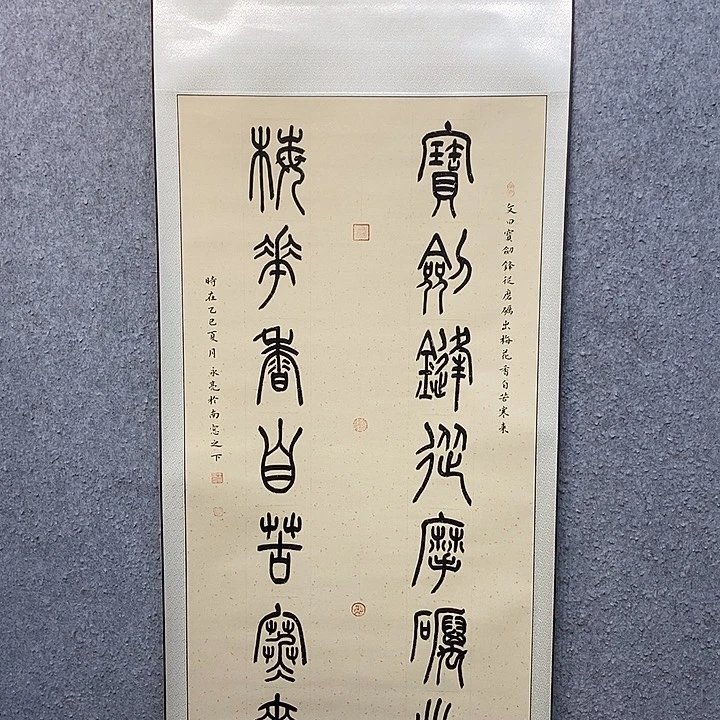 文曰寶劍鋒從磨礪出梅花香自苦寒來
寶劍鋒從摩礪出
梅華香自苦寒來
時在乙巳夏月永亮於南窗之下